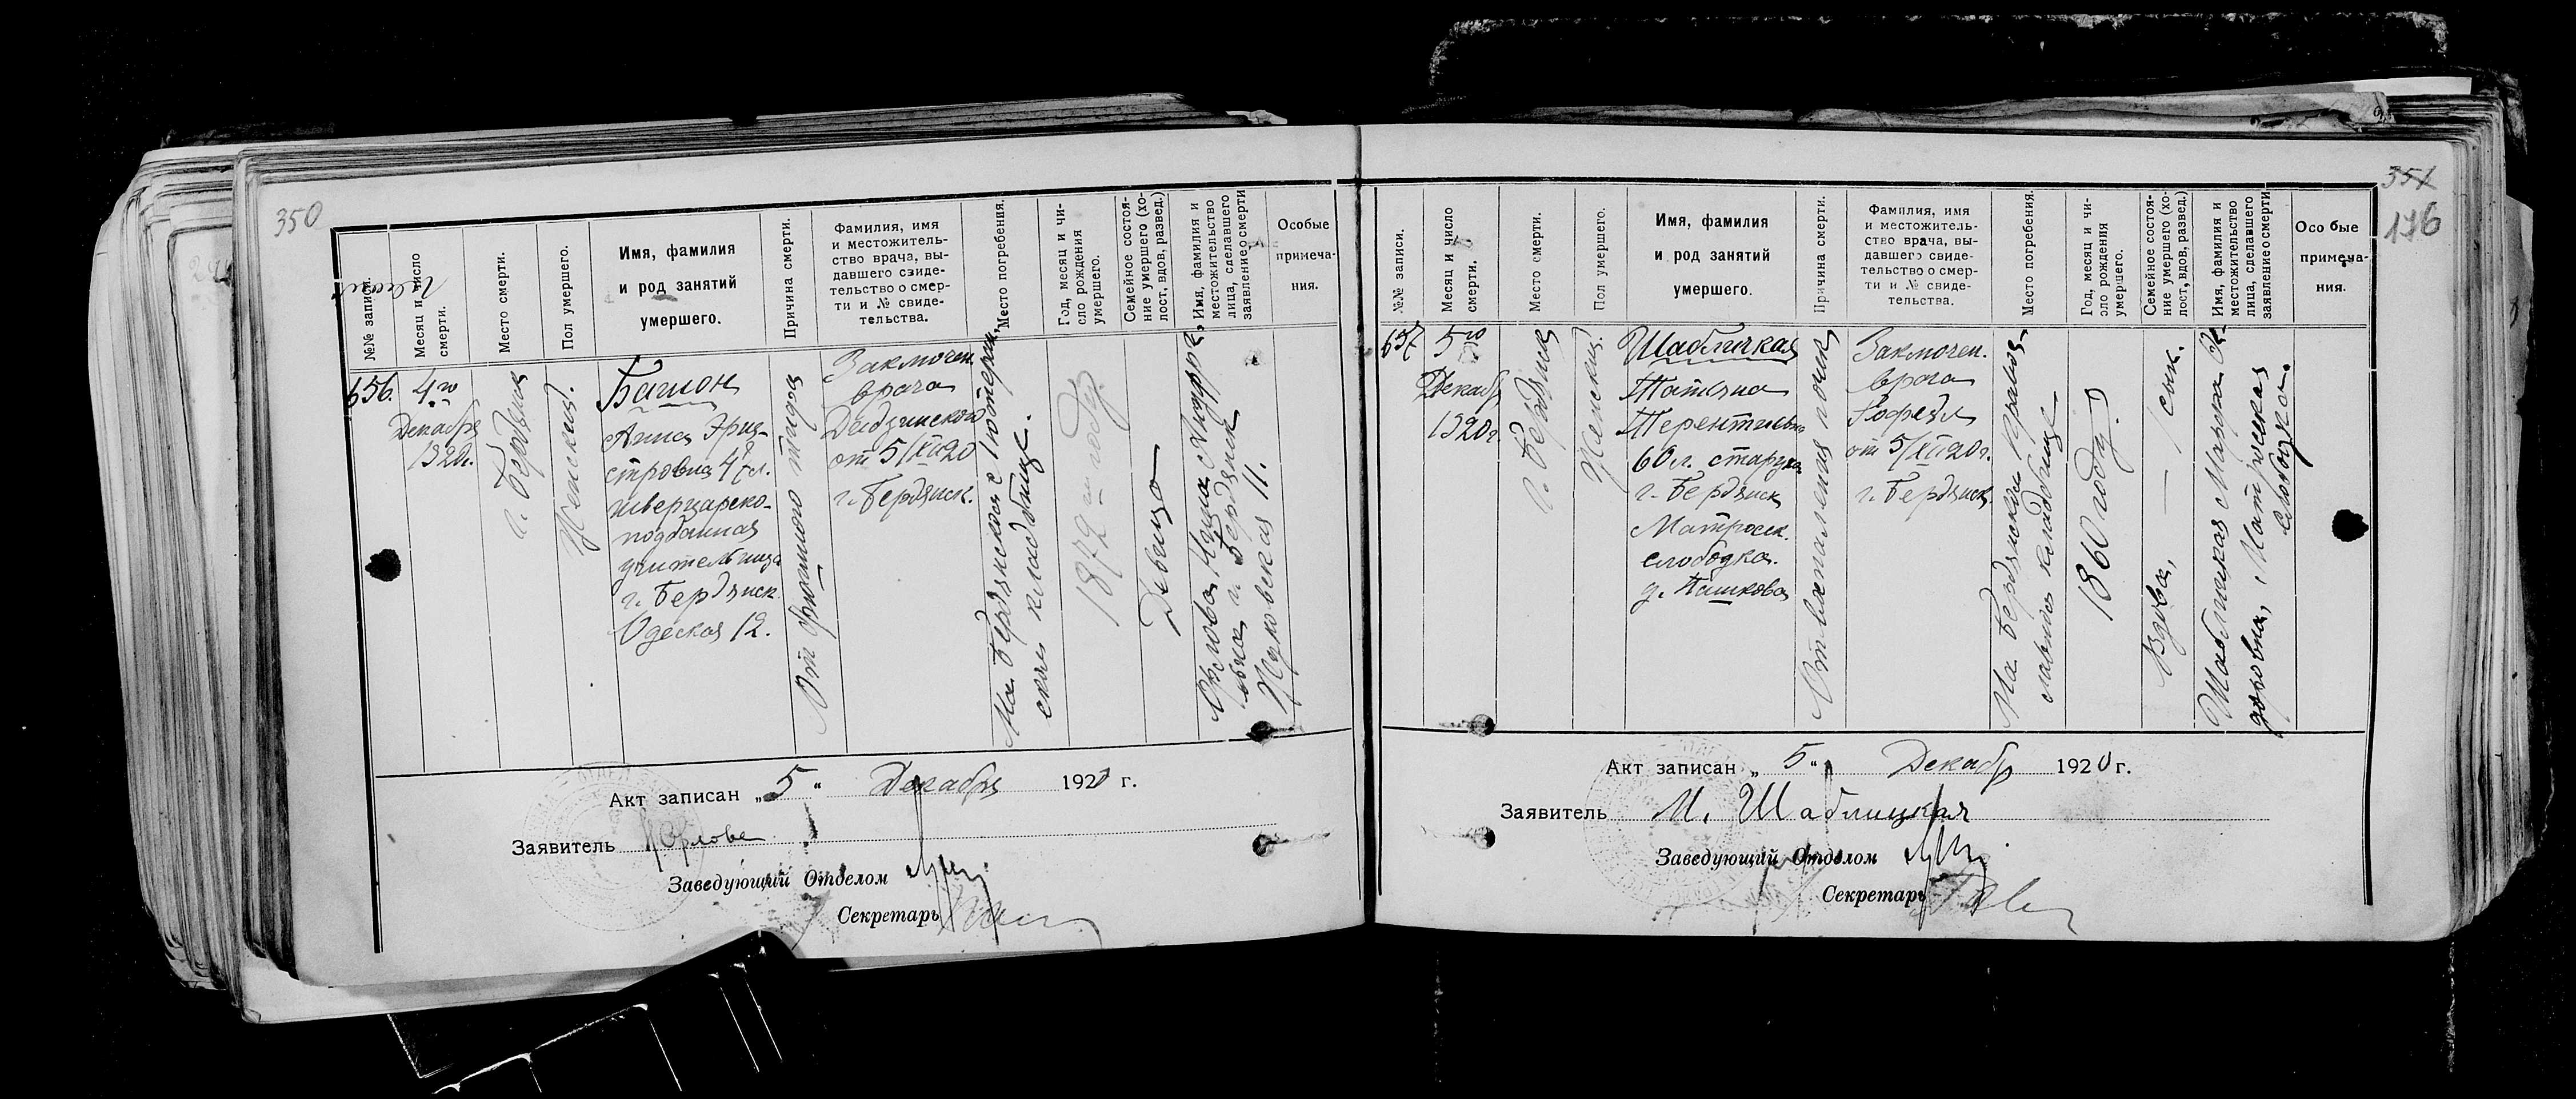 350
№№ записи.
Месяц и число
смерти.
Место смерти.
Пол умершего.
Имя, фамилия
и род занятий
умершего.
Причина смерти.
Фамилия, имя
и местожитель-
ство врача, вы-
давшего свиде-
тельство о смер-
ти и № свиде-
тельства.
Место погребения.
Год, месяц и чи-
сло рождения
умершего.
Семейное состоя-
ние умершего (хо-
лост, вдов, развед.)
Имя, фамилия и
местожительство
лица, сделавшего
заявление о смерти
Особые
примеча-
ния.
656.
4го
Декабря
1920г.
г. Бердянск
Женский.
Башон
Анна
47 л.
швейцарско-
подданная
учительница
г. Бердянск
Одеская 12.
От брюшного тифа
Заключен.
врача
от 5/XII 20
г. Бердянск.
На Бердянском Лютеран-
ском кладбище.
1872 году.
Девица
Орлова
г. Бердянск
11.
Акт записан „5“ Декабря 1920 г.
Заявитель Орлова
Заведующий Отделом
Секретарь
351
176
№№ записи.
Месяц и число
смерти.
Место смерти.
Пол умершего.
Имя, фамилия
и род занятий
умершего.
Причина смерти.
Фамилия, имя
и местожитель-
ство врача, вы-
давшего свиде-
тельство о смер-
ти и № свиде-
тельства.
Место погребения.
Год, месяц и чи-
сло рождения
умершего.
Семейное состоя-
ние умершего (хо-
лост, вдов, развед.)
Имя, фамилия и
местожительство
лица, сделавшего
заявление о смерти
Особые
примеча-
ния.
657
5го
Декабр
1920г.
г. Бердянск
Женский.
Шаблицкая
Татяна
Терентиевна
60 л. старуха
г. Бердянск
Матроск.
слободка.
д. Пашкова
От воспаления почек
Заключен.
врача
от 5/XII 20г.
г. Бердянск
На Бердянском Правос-
лавном кладбище
1860 году.
Вдова, — 1 сын.
Шаблицкая Мария Фе-
доровна, Матроская
слободка.
Акт записан „5“ Декабр 1920 г.
Заявитель М. Шаблицкая
Заведующий Отделом
Секретарь